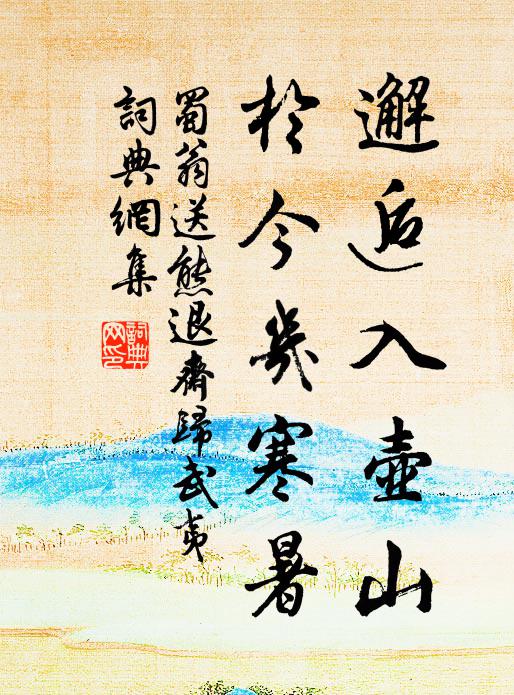 邂逅入壺山
於今幾寒暑
蜀翁送熊退齋歸武夷
詞典網集
詞典
网印